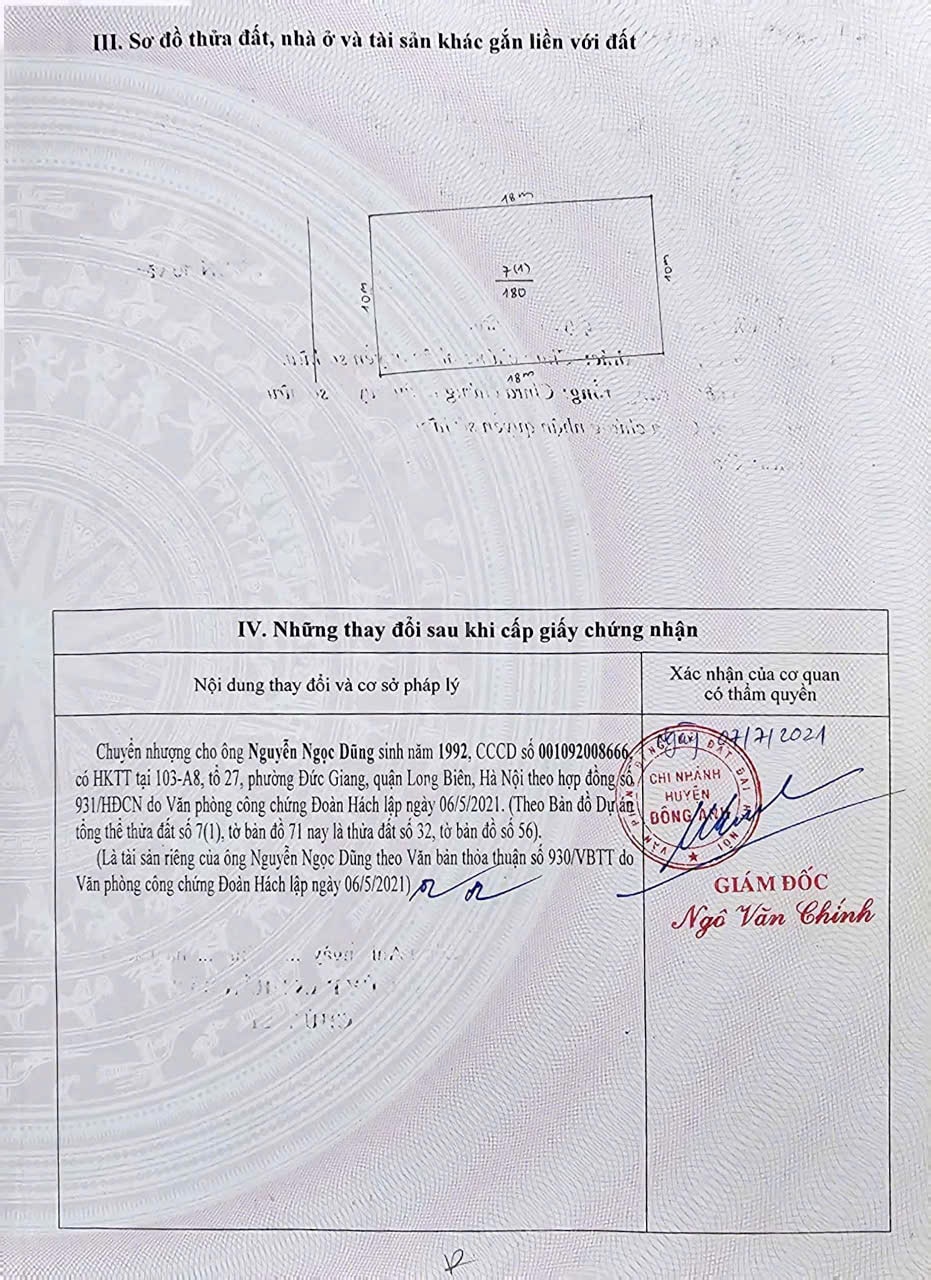 III. Sơ đồ thửa đất, nhà ở và tài sản khác gắn liền với đất
18m
10m
7(1)
180
10m
18m
IV. Những thay đổi sau khi cấp giấy chứng nhận
Nội dung thay đổi và cơ sở pháp lý
Xác nhận của cơ quan
có thẩm quyền
Chuyển nhượng cho ông Nguyễn Ngọc Dũng sinh năm 1992, CCCD số 001092008666,
có HKTT tại 103-A8, tổ 27, phường Đức Giang, quận Long Biên, Hà Nội theo hợp đồng số
931/HĐCN do Văn phòng công chứng Đoàn Hách lập ngày 06/5/2021. (Theo Bản đồ Dự án
tổng thể thửa đất số 7(1), tờ bản đồ 71 nay là thửa đất số 32, tờ bản đồ số 56).
(Là tài sản riêng của ông Nguyễn Ngọc Dũng theo Văn bản thỏa thuận số 930/VBTT do
Văn phòng công chứng Đoàn Hách lập ngày 06/5/2021)
Ngày 07/7/2021
CHI NHÁNH
HUYỆN
ĐÔNG ANH
GIÁM ĐỐC
Ngô Văn Chính